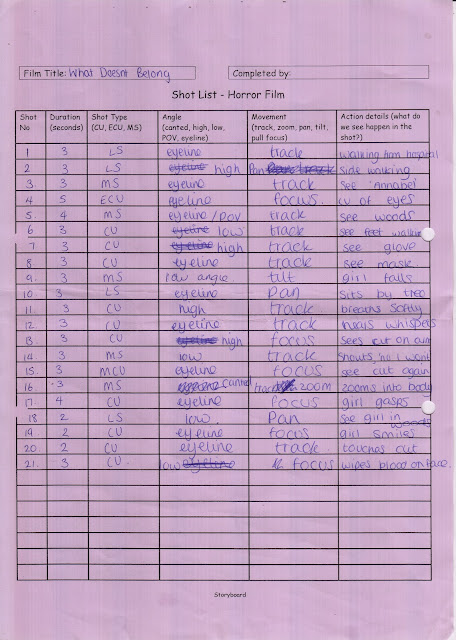 Film Title: What Doesnt Belong Completed by:
Shot List - Horror Film
Shot No Duration (seconds) Shot Type (CU, ECU, MS) Angle (canted, high, low, POV, eyeline) Movement (track, zoom, pan, tilt, pull focus) Action details (what do we see happen in the shot?)
1 3 LS eyeline track walking from hospital
2 3 LS eyeline high Pan track side walking
3. 3 MS eyeline track see 'Annabel'
4 5 ECU eyeline focus. cu of eyes
5. 4 MS eyeline/POV track see woods
6 3 CU eyeline low track see feet walking
7 3 CU eyeline high track see glove
8 3 CU eyeline track see mask.
9. 3 MS low angle. tilt girl falls
10. 3 LS eyeline pan sits by tree
11. 3 CU high track breaths softly
12. 3 CU eyeline track hears whispers
13. 3 CU eyeline high focus sees cut on arm
14 3 MS low track shouts no I wont
15. 3 MCU eyeline focus see cut again
16 3 MS canted track zoom zooms into body
17. 4 CU eyeline focus girl gasps
18 2 LS low. Pan see girl in woods
19 2 CU eyeline focus girl smiles
20. 2 CU eyeline track touches cut
21. 3 CU low eyeline focus wipes blood on face.
Storyboard